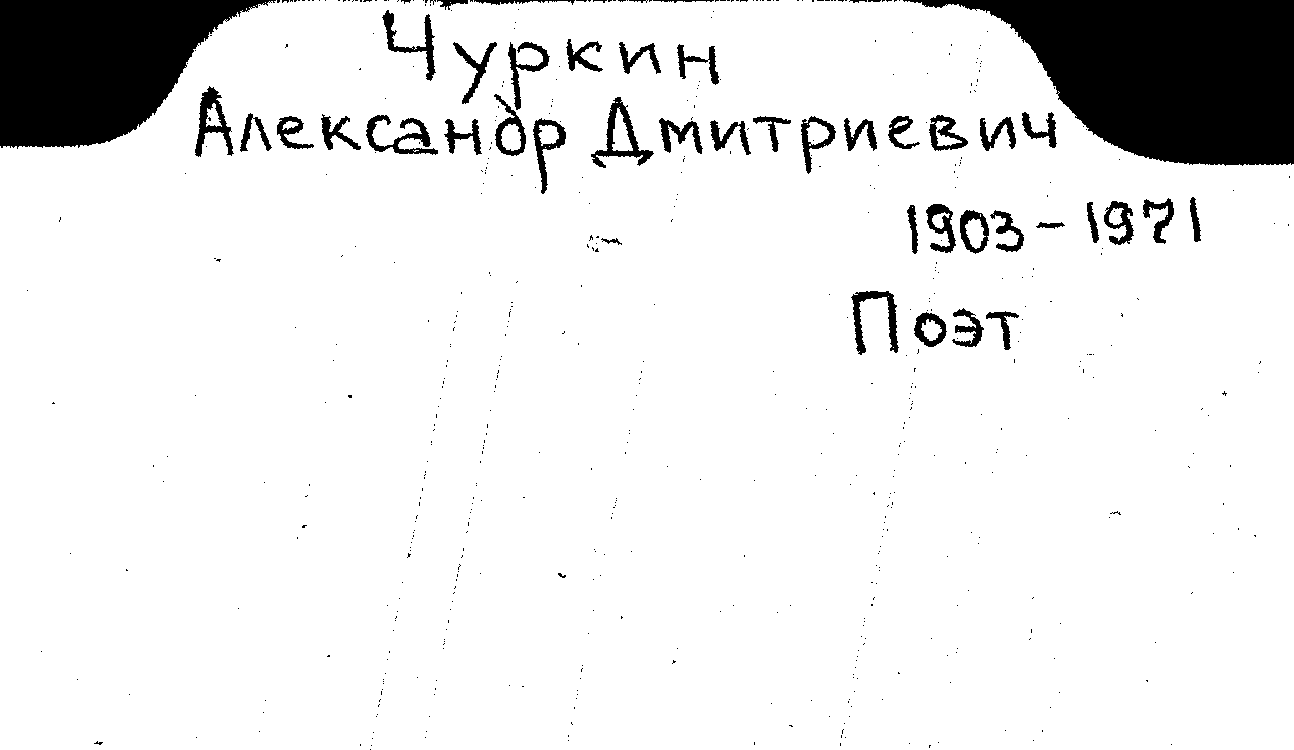 Чуркин
Александр Дмитриевич
1903-1971
Поэт